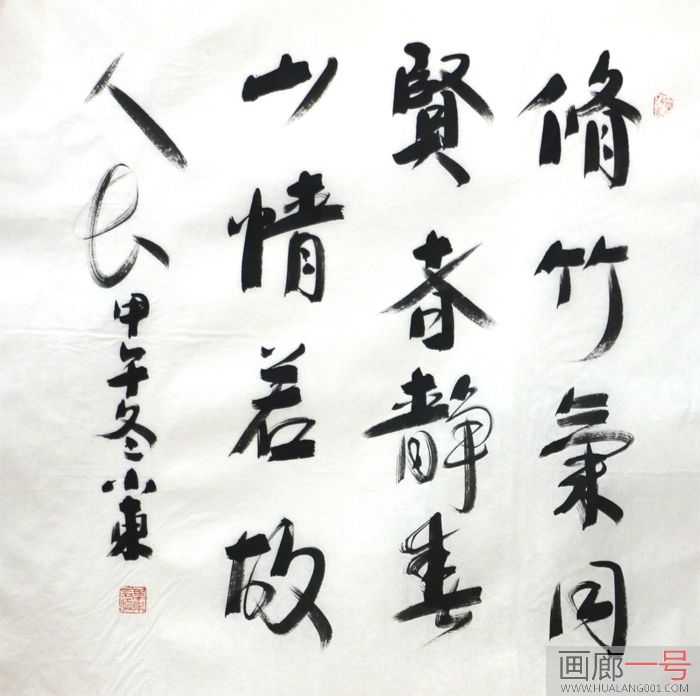 脩竹氣同
賢者靜春
山情若故
人長
甲午冬小東
画廊一号
WWW.HUALANG001.COM